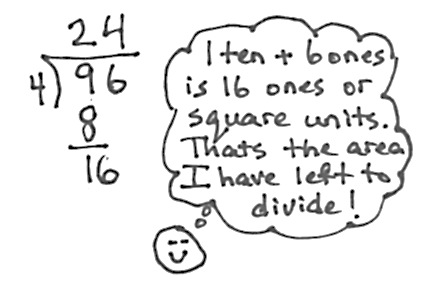 24
4)96
8
16
1 ten + 6 ones
is 16 ones or
square units.
Thats the area
I have left to
divide!